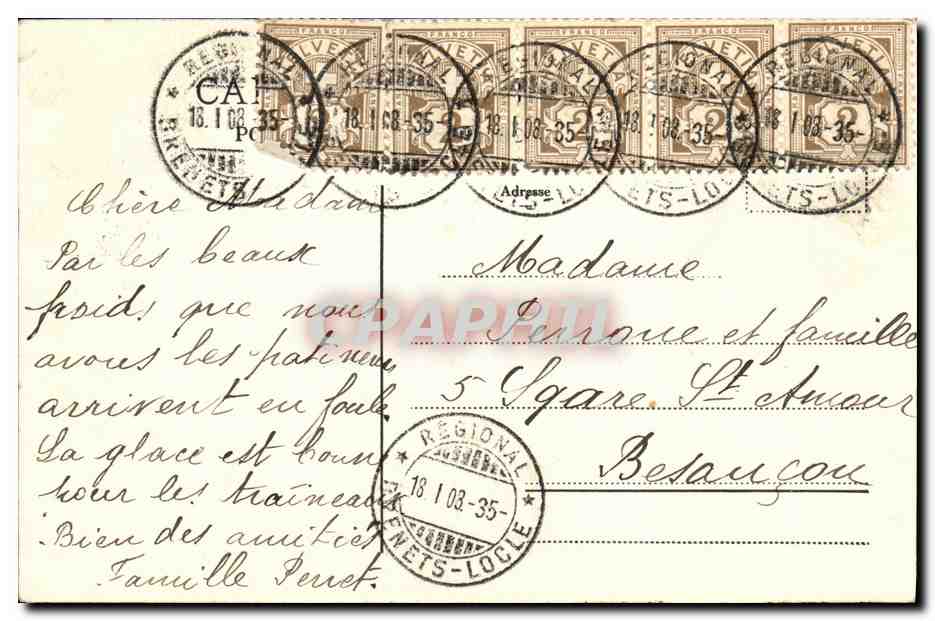 REGIONAL
BRENETS
18. I 08.-35-
REGIONAL
18. I 08.-35-
REGIONAL
BRENETS-LOCLE
18. I 08.-35-
REGIONAL
BRENETS-LOCLE
18. I 08.-35-
REGIONAL
BRENETS-LOCLE
18. I 08.-35-
FRANCO FRANCO FRANCO FRANCO FRANCO
HELVETIA HELVETIA HELVETIA HELVETIA HELVETIA
2 2 2 2 2
CAR
PO
Adresse
Chère Madame
Par les beaux
froids que nous
avons les patineurs
arrivent en foule.
La glace est bonne
pour les traineaux
Bien des amitiés
Famille Perret.
Madame
Perrone et famille
5 Sqare. St Amour
Besançon
REGIONAL
18. I 08.-35-
BRENETS-LOCLE
CPAPHIL